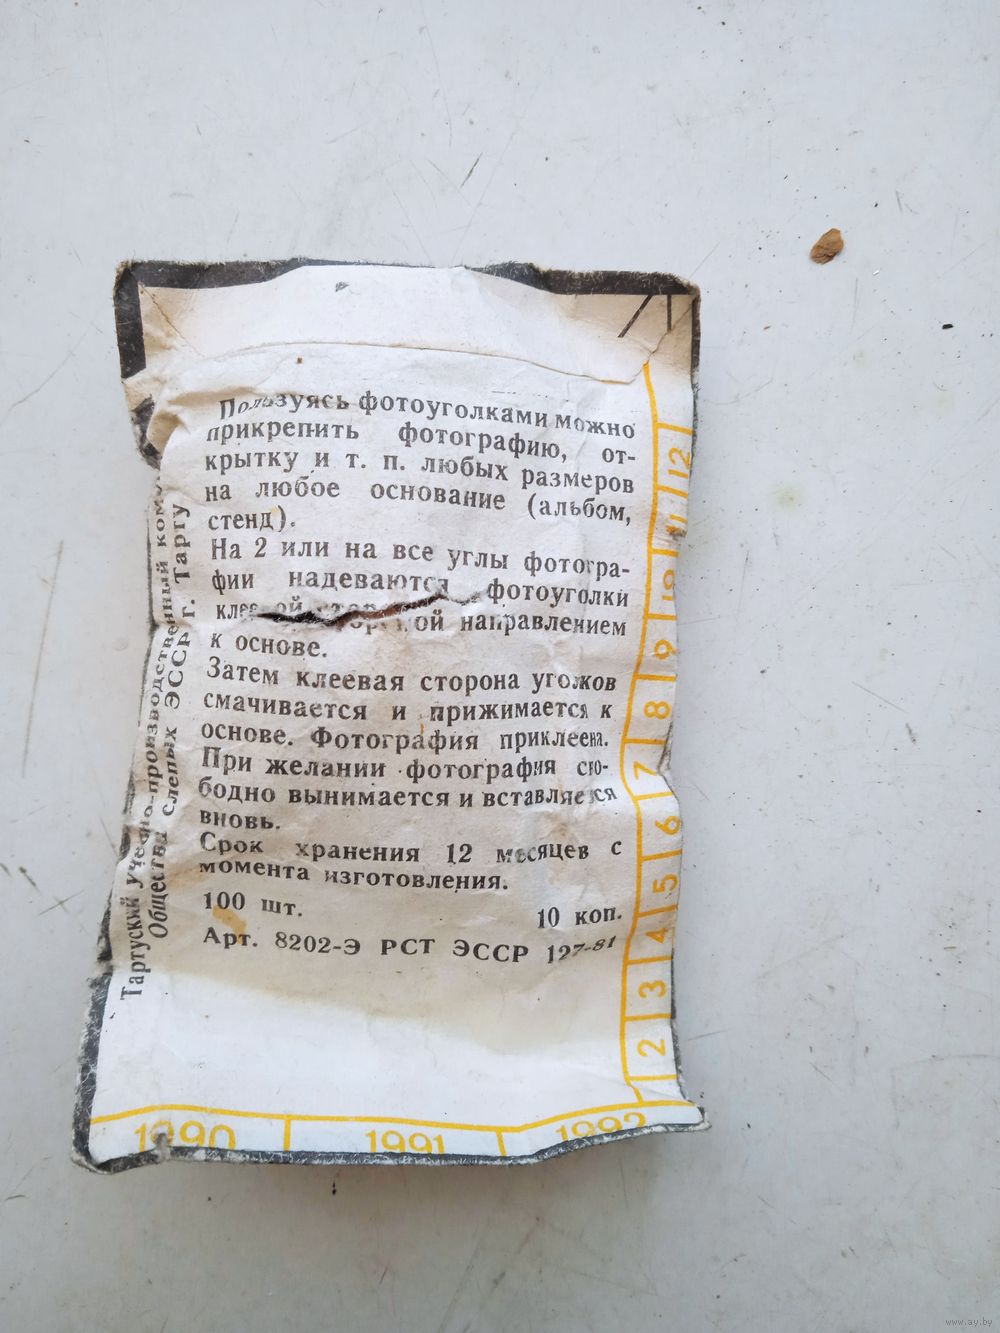 Пользуясь фотоуголками можно
прикрепить фотографию, от-
крытку и т. п. любых размеров
на любое основание (альбом,
стенд).
На 2 или на все углы фотогра-
фии надеваются фотоуголки
направлением
к основе.
Затем клеевая сторона уголков
смачивается и прижимается к
основе. Фотография приклеена.
При желании фотография сво-
бодно вынимается и вставляется
вновь.
Срок хранения 12 месяцев с
момента изготовления.
100 шт. 10 коп.
Арт. 8202-Э РСТ ЭССР 127-81
Тартуский учебно-производственный
Общества слепых ЭССР г. Тарту
12
11
10
9
8
7
6
5
4
3
2
1990 1991 1992
www.ay.by